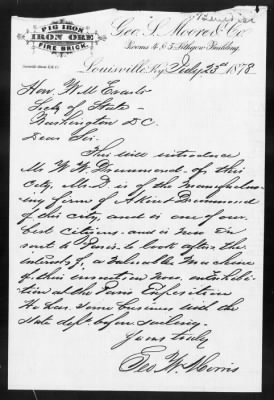 PIG IRON
IRON ORE
FIRE BRICK
Geo. L. Moore & Co.
Rooms 4 & 5 Lithgow Building
Louisville, Ky. July 23rd 1878
Hon. W M Evarts
Secty of State -
Washington D.C.
Dear Sir.
This will introduce
Mr W. W. Drummond. of this
City, Mr. D is of the Manufactur-
ing firm of & Drummond
of this city, and is one of our
best citizens. and is now en
rout to Paris. to look after the
interests of a valuable Machine
of this invention now on Exhibi-
tion at the Paris Exposition
He has some business with the
State dept before sailing.
Yours truly
Geo. W. Morris